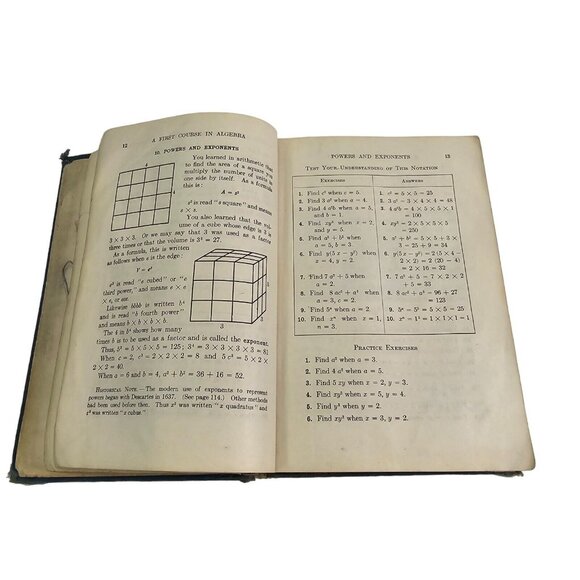 12
A FIRST COURSE IN ALGEBRA
10. POWERS AND EXPONENTS
4
4
You learned in arithmetic that
to find the area of a square you
multiply the number of units in
one side by itself. As a formula,
this is:
A = s²
s² is read "s square" and means
s × s.
You also learned that the vol-
ume of a cube whose edge is 3 is
3 × 3 × 3. Or we may say that 3 was used as a factor
three times or that the volume is 3³ = 27.
As a formula, this is written
as follows when e is the edge:
V = e³
e³ is read "e cubed" or "e
third power," and means e × e
× e, or eee.
Likewise bbbb is written b⁴
and is read "b fourth power"
and means b × b × b × b.
The 4 in b⁴ shows how many
3
3
times b is to be used as a factor and is called the exponent.
Thus, 5³ = 5 × 5 × 5 = 125; 3⁴ = 3 × 3 × 3 × 3 = 81
When c = 2, c³ = 2 × 2 × 2 = 8 and 5 c³ = 5 × 2
× 2 × 2 = 40.
When a = 6 and b = 4, a² + b² = 36 + 16 = 52.
HISTORICAL NOTE.—The modern use of exponents to represent
powers began with Descartes in 1637. (See page 114.) Other methods
had been used before then. Thus x² was written "x quadratus" and
x³ was written "x cubus."
POWERS AND EXPONENTS
13
TEST YOUR UNDERSTANDING OF THIS NOTATION
EXERCISES
ANSWERS
1. Find c² when c = 5.
1. c² = 5 × 5 = 25
2. Find 3 a² when a = 4.
2. 3 a² = 3 × 4 × 4 = 48
3. Find 4 a²b when a = 5,
and b = 1.
3. 4 a²b = 4 × 5 × 5 × 1
= 100
4. Find xy³ when x = 2,
and y = 5.
4. xy³ = 2 × 5 × 5 × 5
= 250
5. Find a² + b² when
a = 5, b = 3.
5. a² + b² = 5 × 5 + 3 ×
3 = 25 + 9 = 34
6. Find y(5 x − y²) when
x = 4, y = 2.
6. y(5 x − y²) = 2 (5 × 4 −
2 × 2) = 2 (20 − 4)
= 2 × 16 = 32
7. Find 7 a² + 5 when
a = 2.
7. 7 a² + 5 = 7 × 2 × 2
+ 5 = 33
8. Find 8 ac² + a³ when
a = 3, c = 2.
8. 8 ac² + a³ = 96 + 27
= 123
9. Find 5ᵃ when a = 2.
9. 5ᵃ = 5² = 5 × 5 = 25
10. Find xⁿ when x = 1,
n = 3.
10. xⁿ = 1³ = 1 × 1 × 1
= 1
PRACTICE EXERCISES
1. Find a² when a = 3.
2. Find 4 a² when a = 5.
3. Find 5 xy when x = 2, y = 3.
4. Find xy² when x = 5, y = 4.
5. Find y⁵ when y = 2.
6. Find xy³ when x = 3, y = 2.